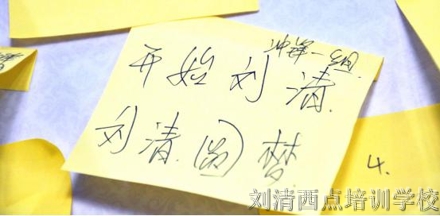 冲锋一组
开始刘清
刘清圆梦
4.
刘清西点培训学校